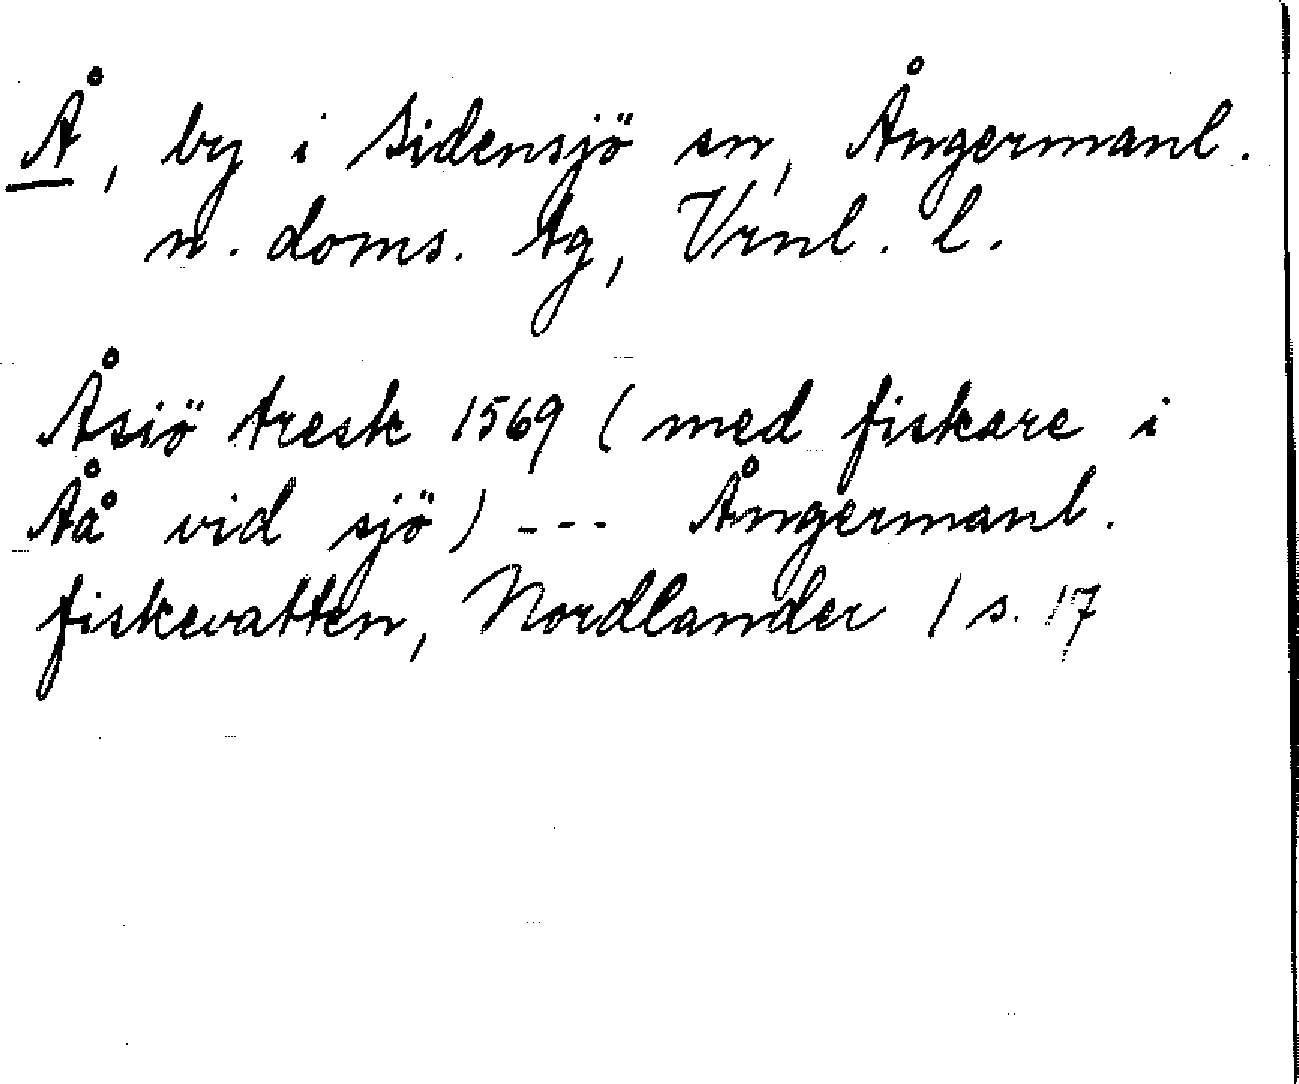 Å, by i Sidensjö sn, Ångermanl.
n. doms. tg, Vrnl. l.
Åsiö tresk 1569 (med fiskare i
Åå vid sjö) --- Ångermanl.
fiskevatten, Nordlander 1 s. 17